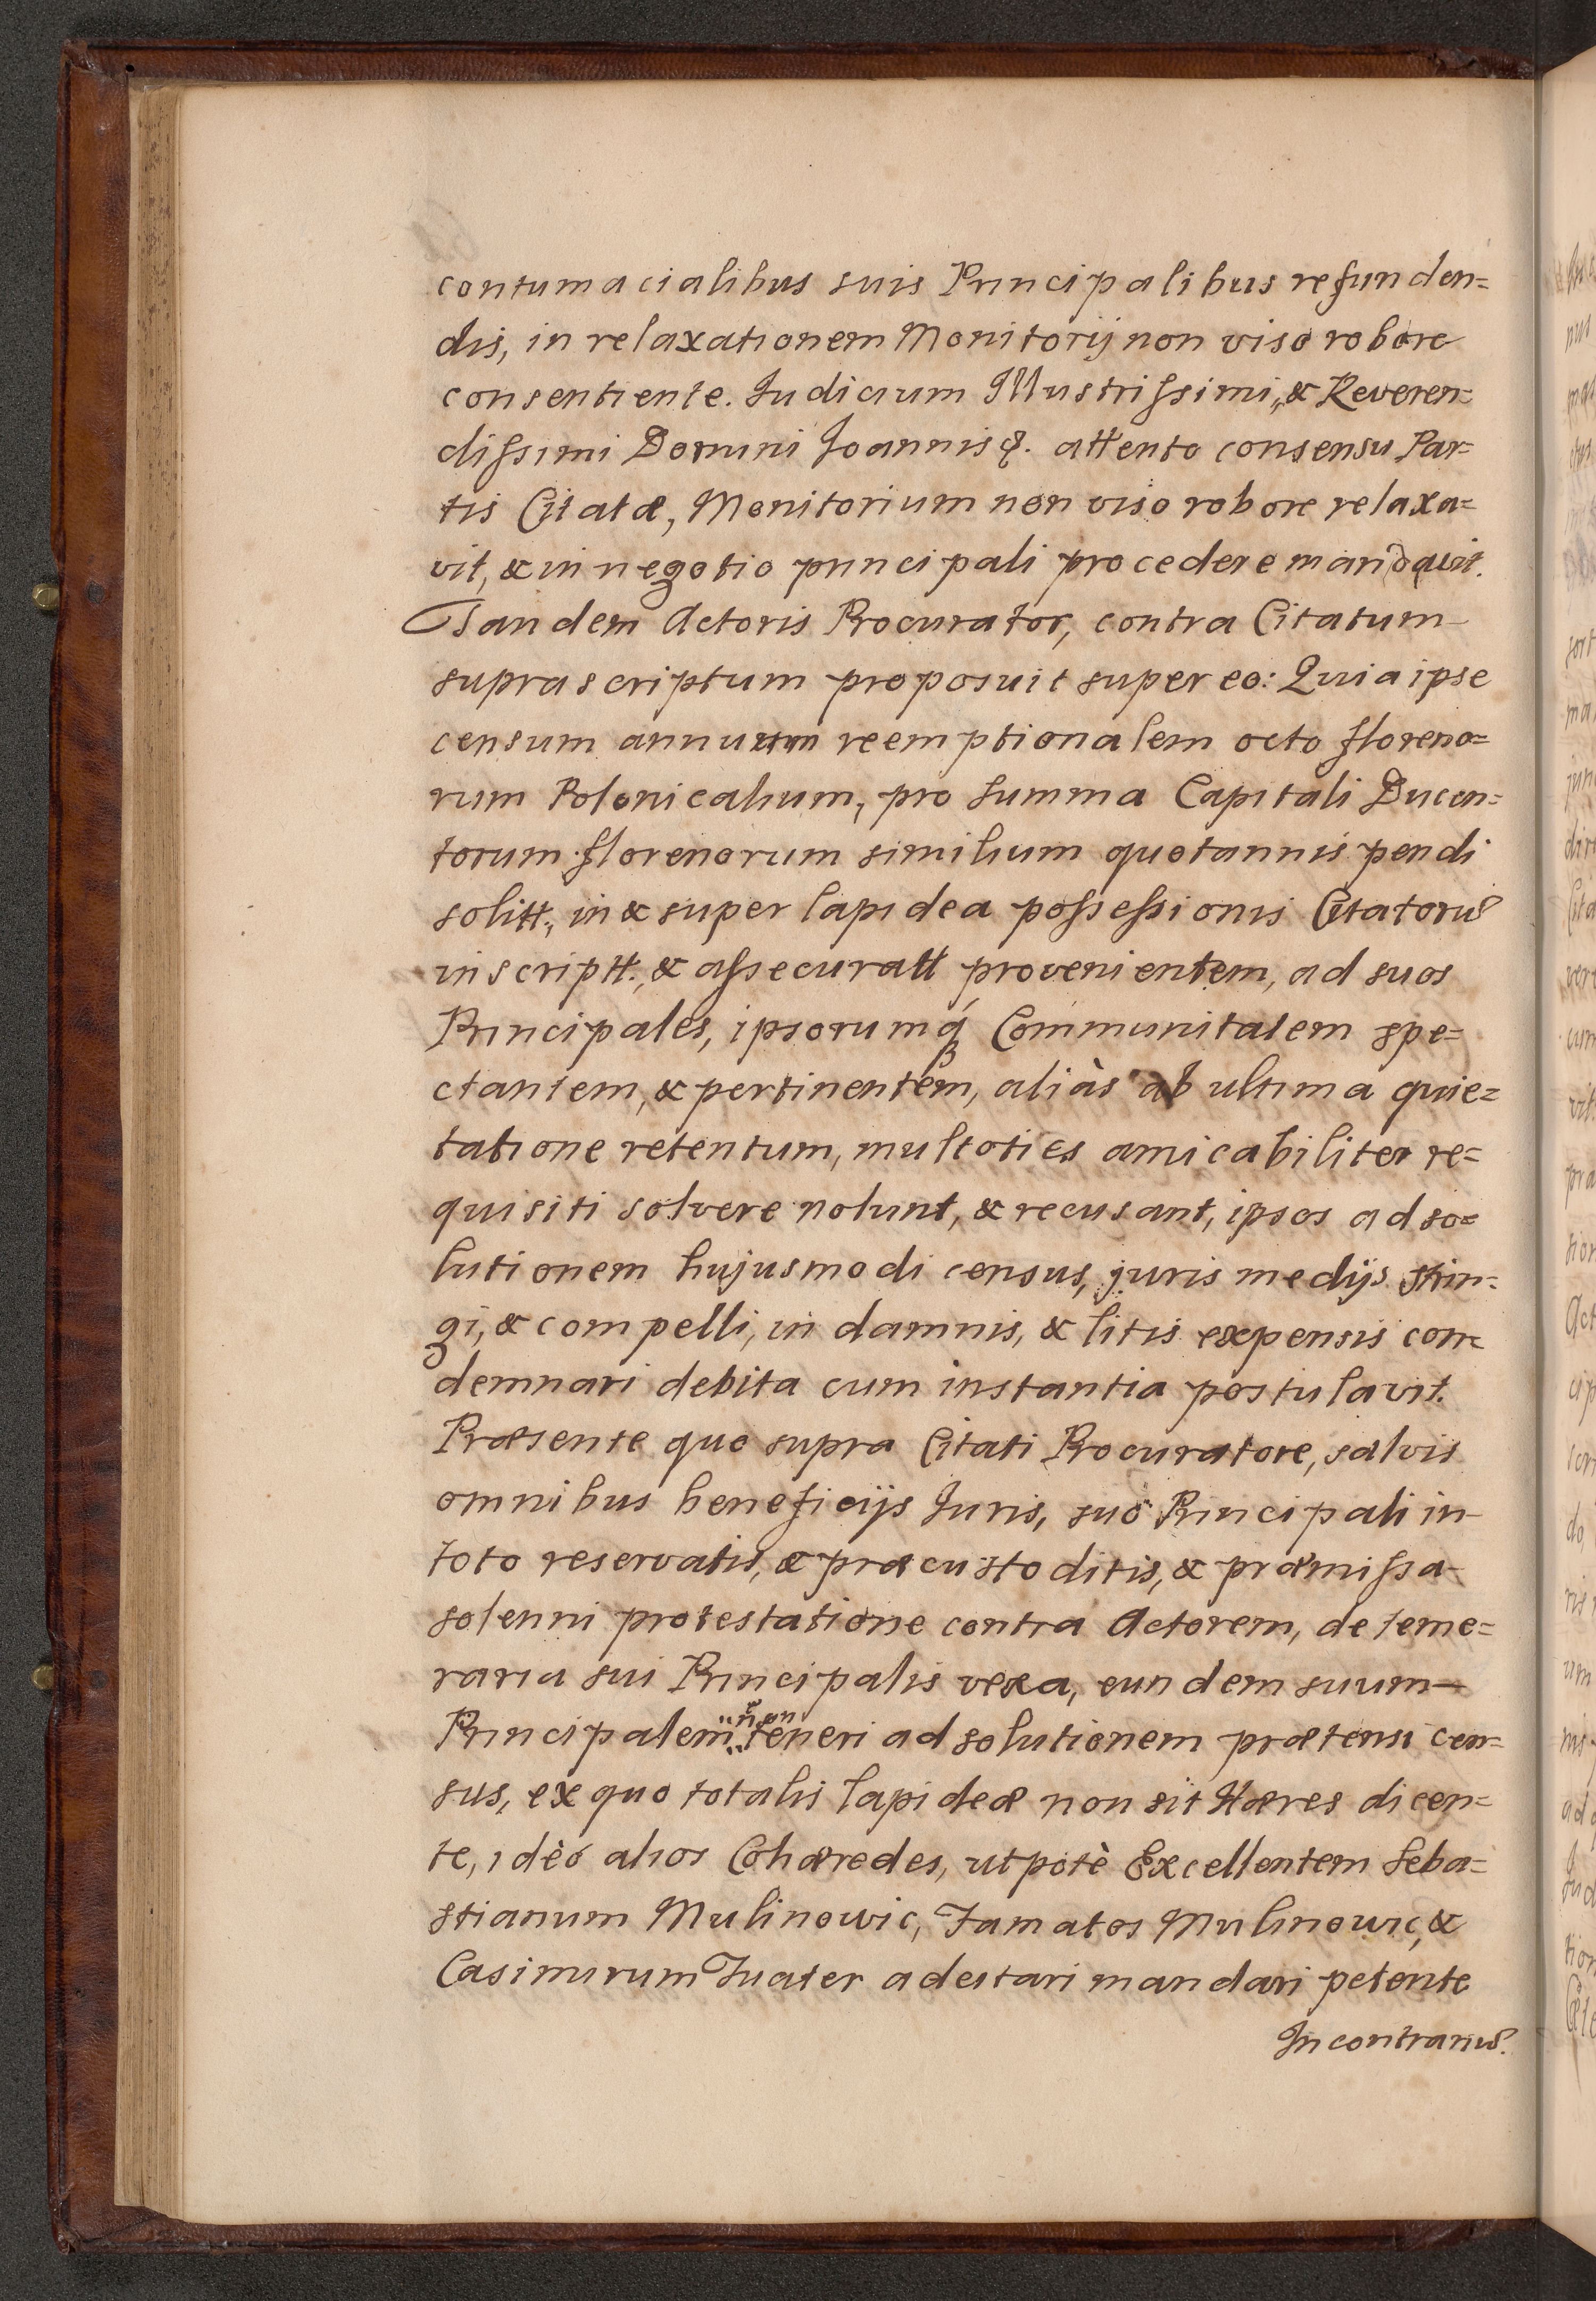 contumacialibus suis Principalibus refunden=
dis, in relaxationem Monitorij non viso robore
consentiente. Judicium Illustrissimi, & Reveren=
dissimi Domini Joannis &. attento consensu Par=
tis Citatæ, Monitorium non viso robore relaxa=
vit, & in negotio principali procedere mandavit.
Tandem Actoris Procurator, contra Citatum
suprascriptum proposuit super eo: Quia ipse
censum annuum reemptionalem octo floreno=
rum Polonicalium, pro Summa Capitali Ducen=
torum florenorum similium quotannis pendi
solitt:, in & super lapidea possessionis Citatorũ
inscriptt:, & assecuratt provenientem, ad suos
Principales, ipsorumq́ Communitatem spe=
ctantem, & pertinentem, aliàs ab ultima quie=
tatione retentum, multoties amicabiliter re=
quisiti solvere nolunt, & recusant, ipsos ad so=
lutionem hujusmodi census, juris medijs strin=
gi, & compelli, in damnis, & litis expensis con=
demnari debita cum instantia postulavit.
Præsente quo supra Citati Procuratore, salvis
omnibus beneficijs Juris, suo Principali in
toto reservatis, & præcustoditis, & præmissa
solenni protestatione contra Actorem, de teme=
raria sui Principalis vexa, eundem suum
Principalem non teneri ad solutionem prætensi cen=
sus, ex quo totalis lapideæ non sit Hæres dicen=
te, ideò alios Cohæredes, utpotè Excellentem Seba=
stianum Mulinowic, Famatos Mulinowic, &
Casimirum adcitari mandari petente
In contrariũ.